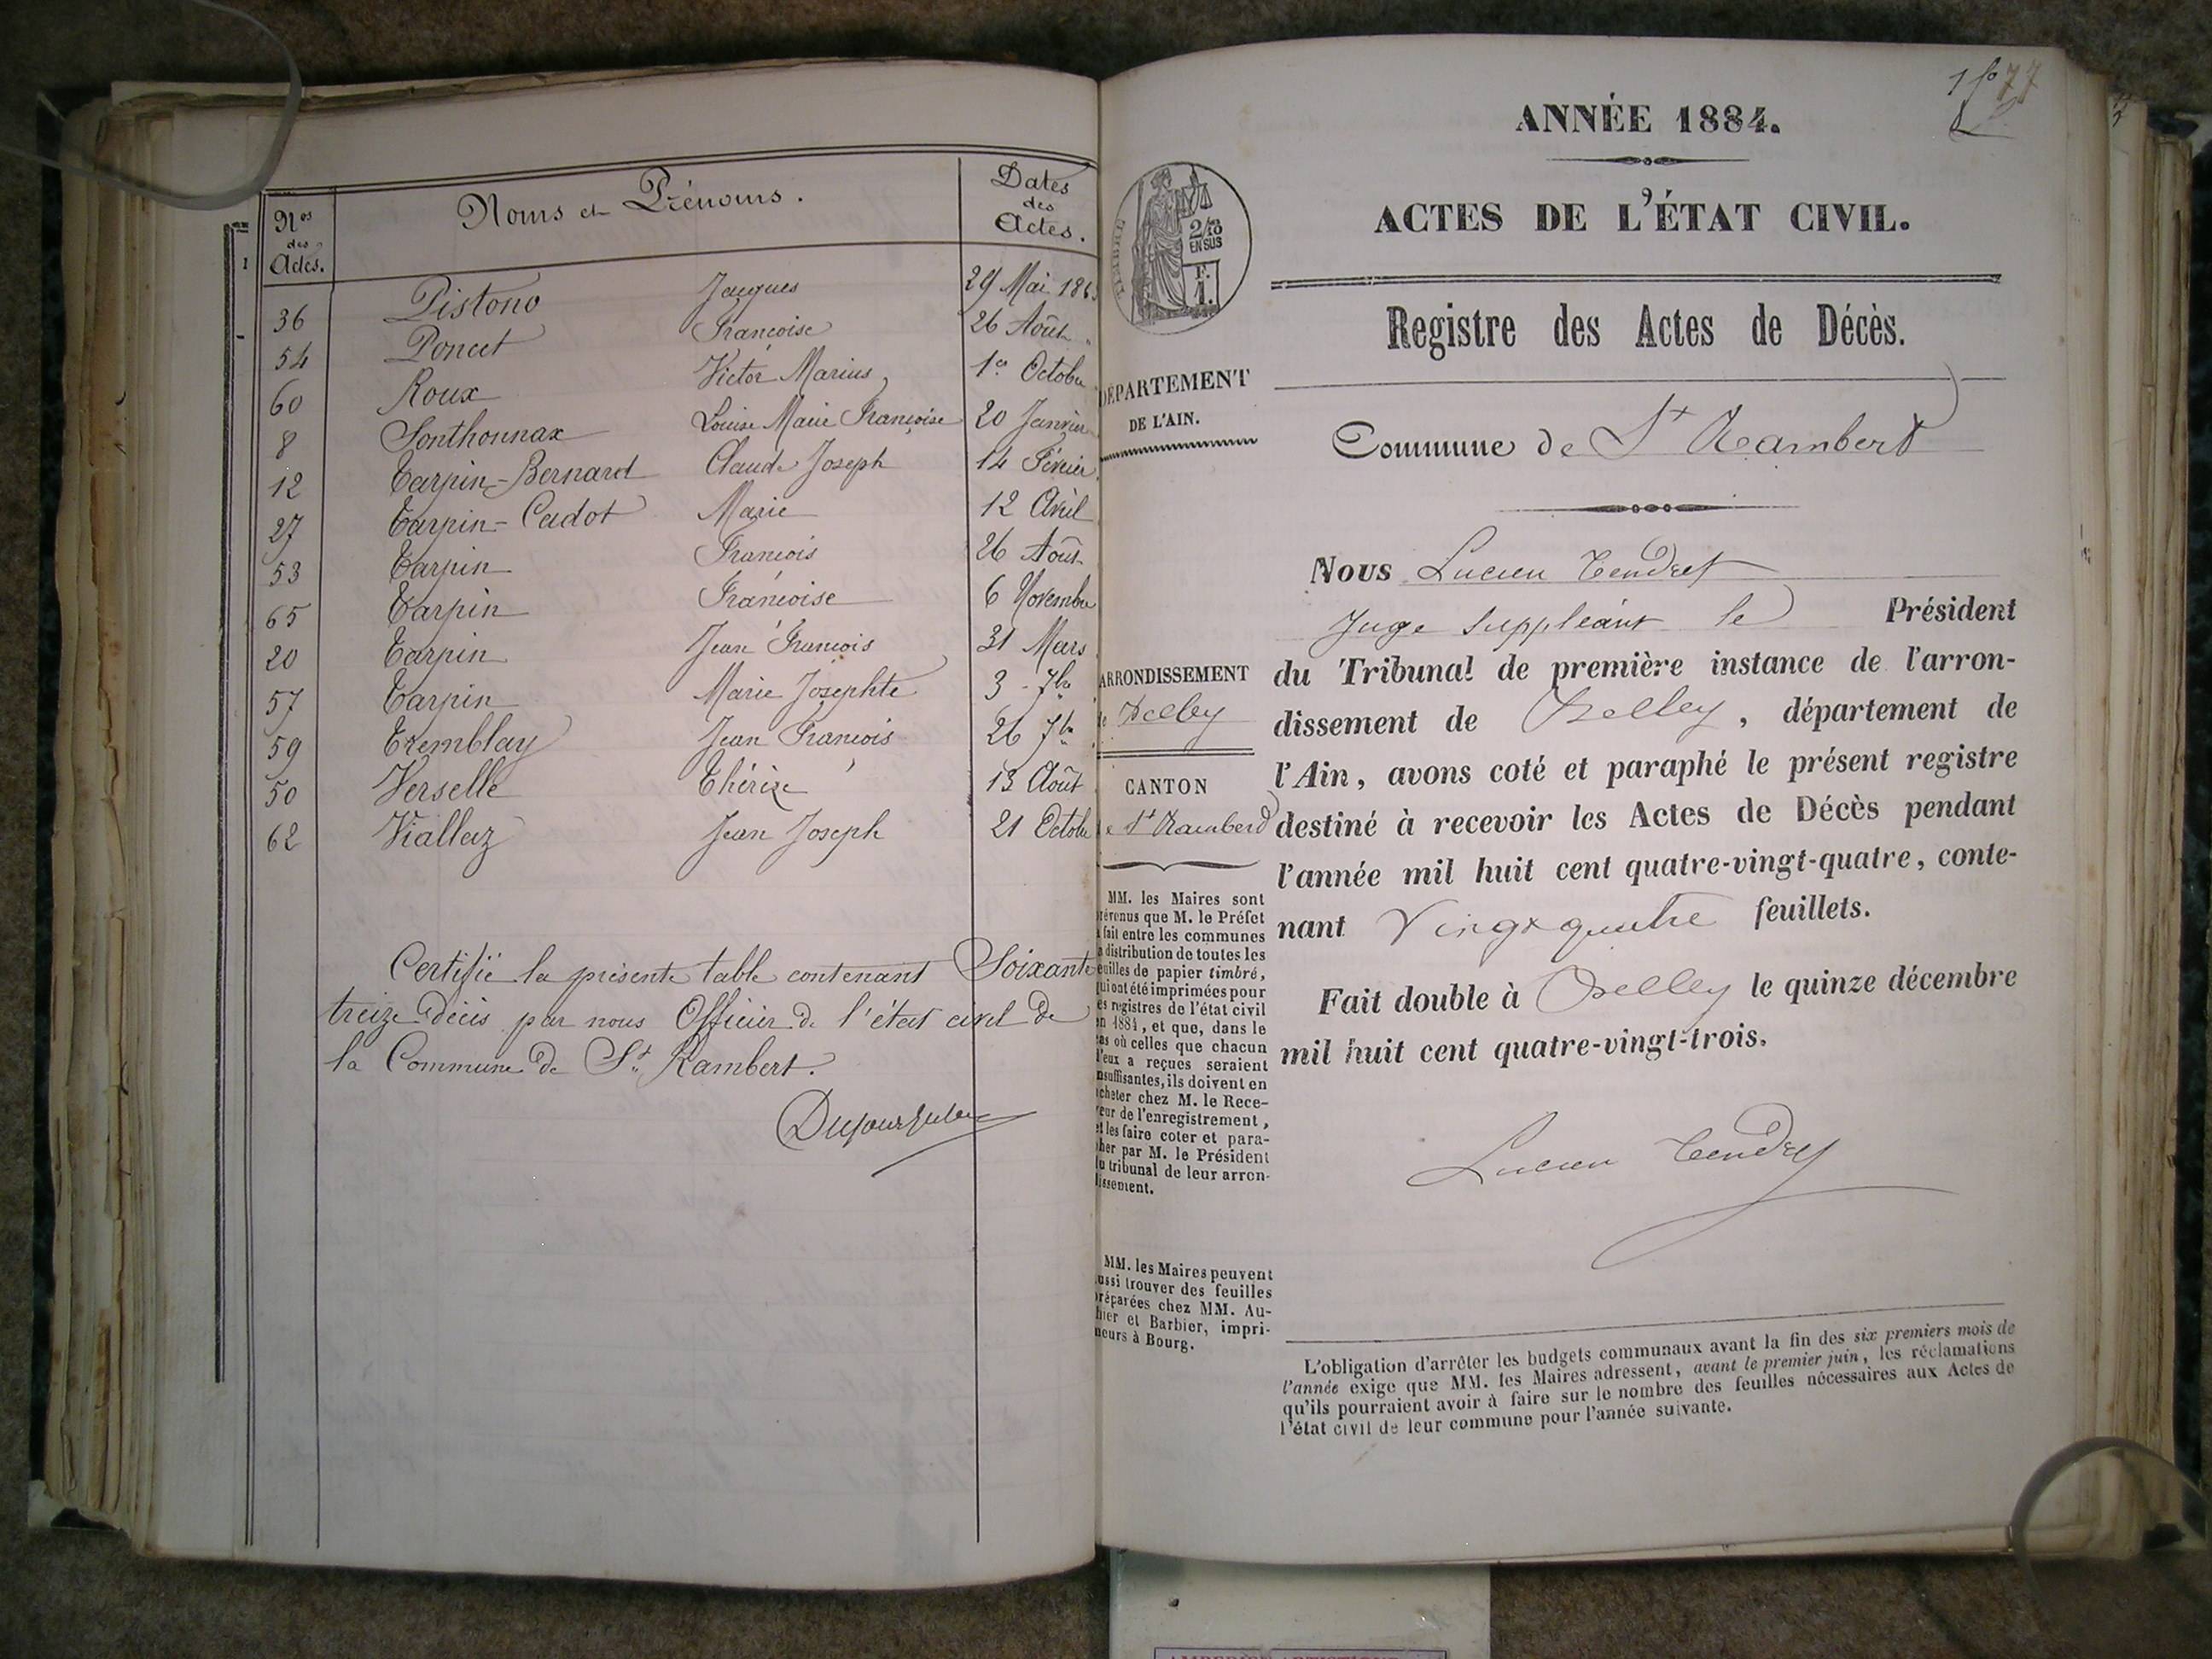 Nos des Actes.
Noms et Prénoms.
Dates des Actes.
36 Pistono Jacques 29 Mai
54 Poncet Françoise 26 Août
60 Roux Victor Marius 1er Octobre
8 Sonthonnax Louise Marie Françoise 20 Janvier
12 Tarpin-Bernard Claude Joseph 14 Février
27 Tarpin-Cadot Marie 12 Avril
53 Tarpin François 26 Août
65 Tarpin Françoise 6 Novembre
20 Tarpin Jean François 31 Mars
57 Tarpin Marie Josephte 3 7bre
59 Tremblay Jean François 26 7bre
50 Verselle Thérèse 13 Août
62 Viallaz Jean Joseph 21 Octobre
Certifié la présente table contenant Soixante
treize décès par nous Officier de l'état civil de
la Commune de St Rambert.
1 fo 77
ANNÉE 1884.
ACTES DE L'ÉTAT CIVIL.
2/10
EN SUS
F.
1.
Registre des Actes de Décès.
DÉPARTEMENT
DE L'AIN.
Commune de St Rambert
Nous Lucien Tendret
Juge suppléant le Président
du Tribunal de première instance de l'arron-
dissement de Belley, département de
l'Ain, avons coté et paraphé le présent registre
destiné à recevoir les Actes de Décès pendant
l'année mil huit cent quatre-vingt-quatre, conte-
nant Vingt quatre feuillets.
Fait double à Belley le quinze décembre
mil huit cent quatre-vingt-trois.
Lucien Tendret
ARRONDISSEMENT
de Belley
CANTON
de St Rambert
MM. les Maires sont
prévenus que M. le Préfet
a fait entre les communes
la distribution de toutes les
feuilles de papier timbré,
qui ont été imprimées pour
les registres de l'état civil
en 1884, et que, dans le
cas où celles que chacun
d'eux a reçues seraient
insuffisantes, ils doivent en
acheter chez M. le Rece-
veur de l'enregistrement,
et les faire coter et para-
pher par M. le Président
du tribunal de leur arron-
dissement.
MM. les Maires peuvent
aussi trouver des feuilles
préparées chez MM. Au-
thier et Barbier, impri-
meurs à Bourg.
L'obligation d'arrêter les budgets communaux avant la fin des six premiers mois de
l'année exige que MM. les Maires adressent, avant le premier juin, les réclamations
qu'ils pourraient avoir à faire sur le nombre des feuilles nécessaires aux Actes de
l'état civil de leur commune pour l'année suivante.